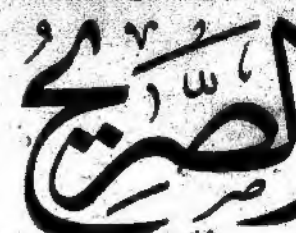 الصريح